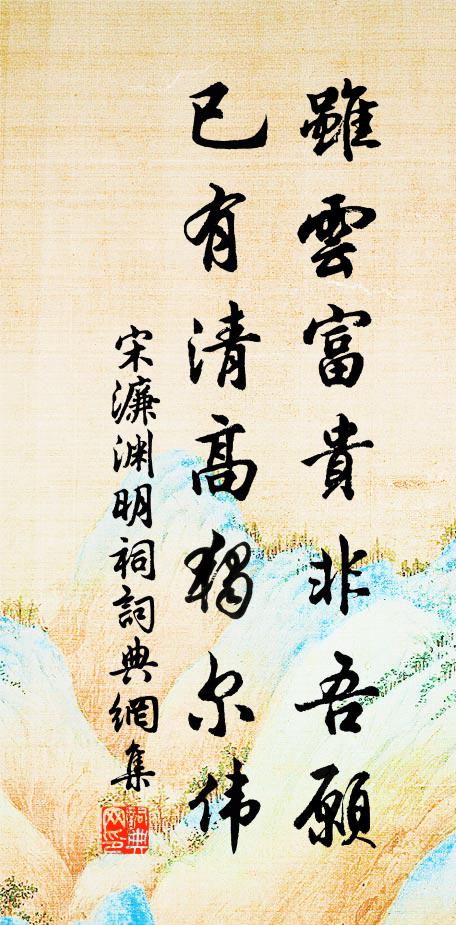 雖雲富貴非吾願
已有清高獨尔伟
宋濂渊明祠詞典網集